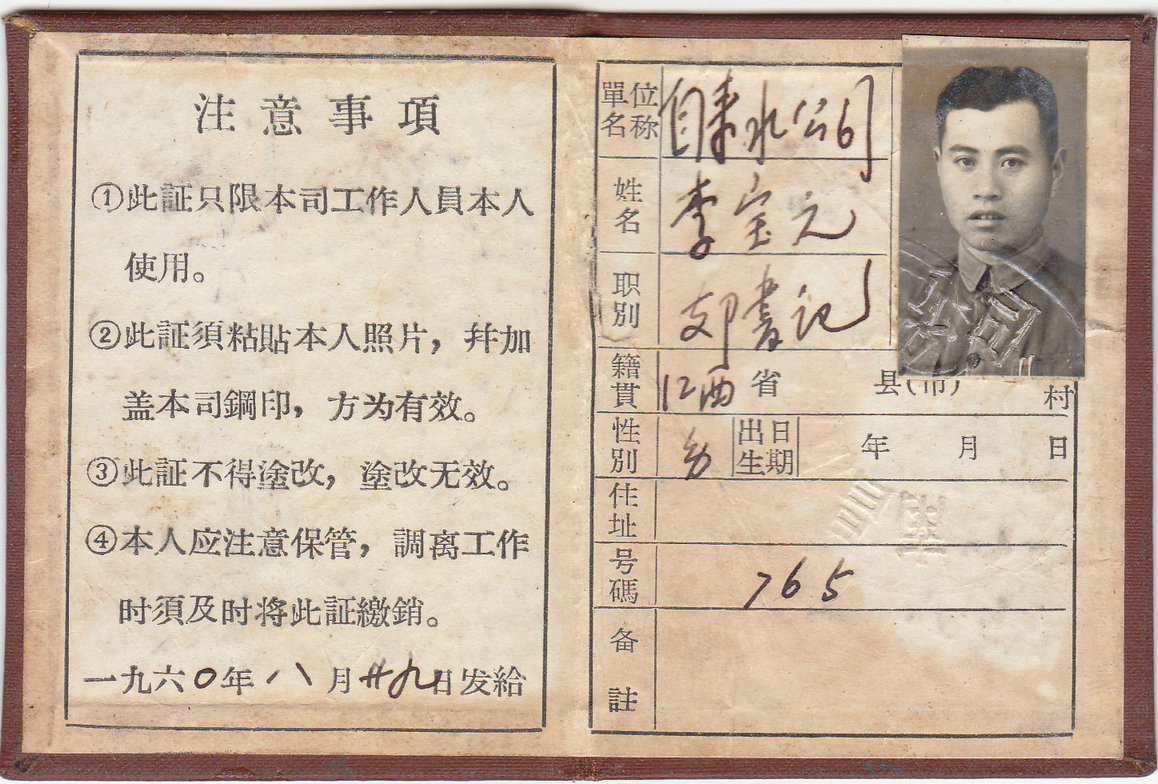 注意事項
①此証只限本司工作人員本人
使用。
②此証須粘貼本人照片，幷加
盖本司鋼印，方为有效。
③此証不得塗改，塗改无效。
④本人应注意保管，調离工作
时須及时将此証繳銷。
一九六0年八月廿九日发給
單位名称 自来水公司
姓名 李宝元
职別 書记
籍貫 江西省 县(市) 村
性別 男 出生日期 年 月 日
住址
号碼 765
备註